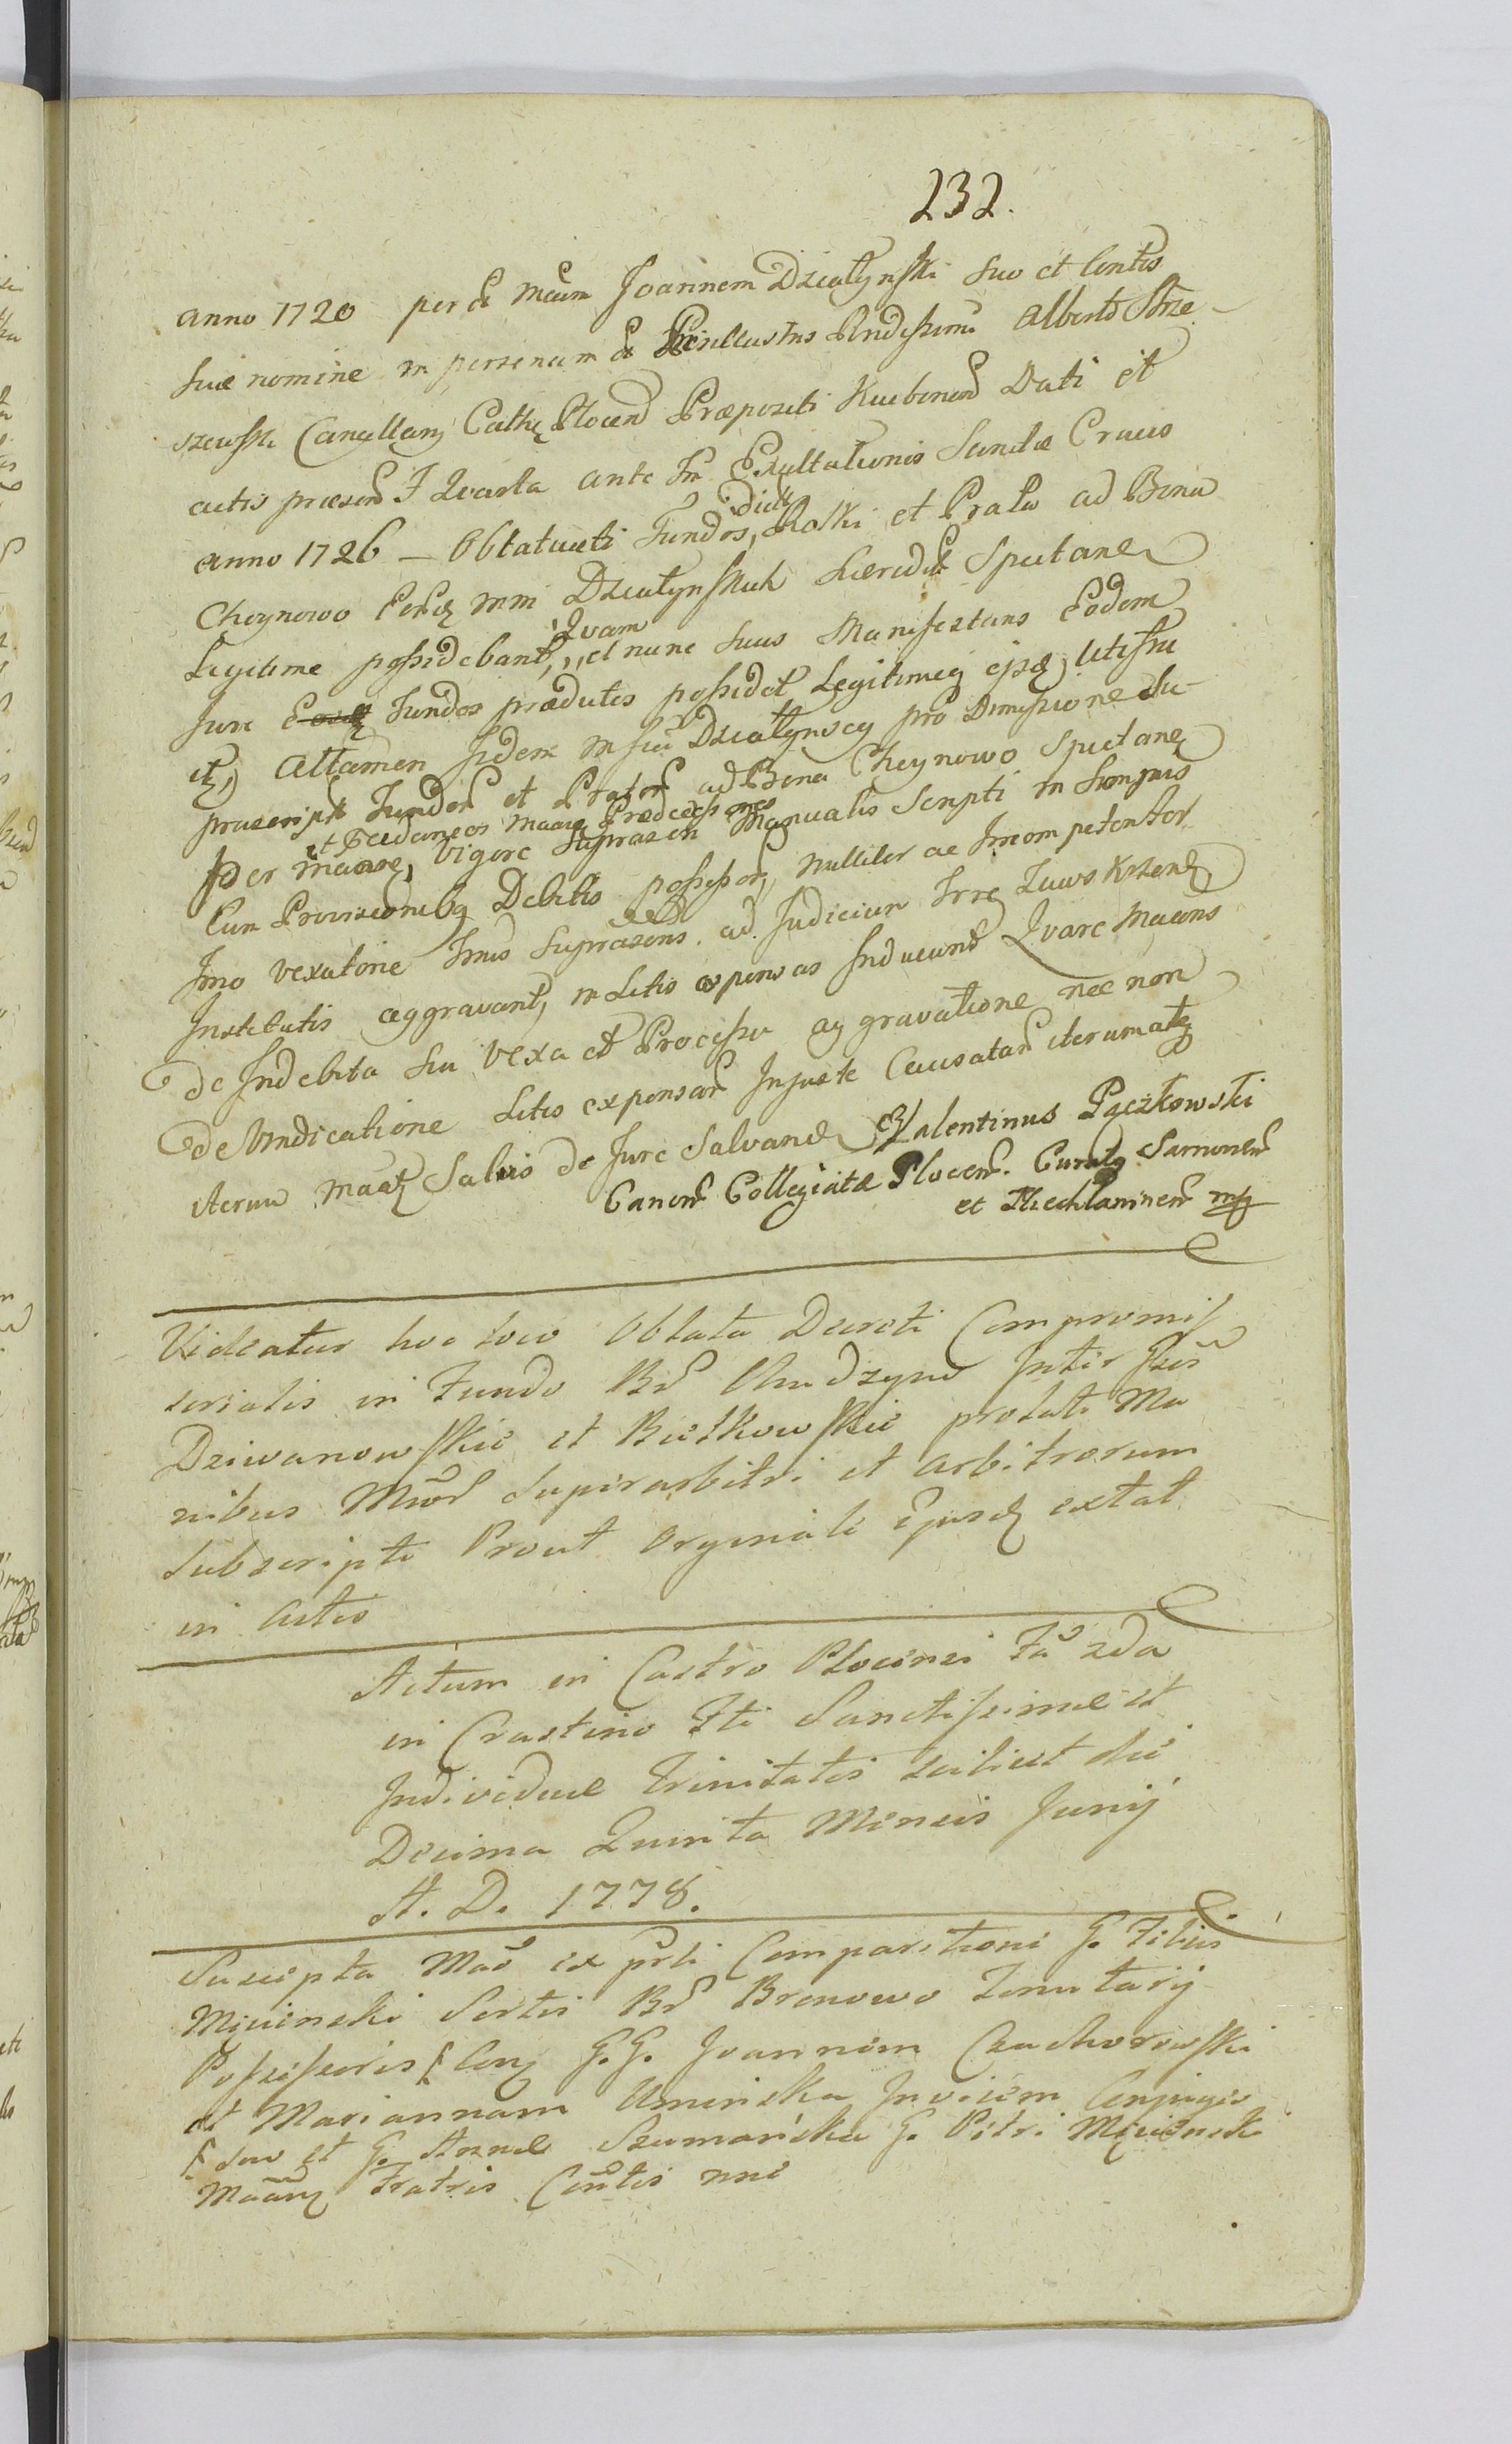 232.
anno 1720 per G Mcum Joannem Działynski suo et Contis
suæ nomine in personam G Perillustris Rndissimi Alberti Strze-
szewski Cancellarij Cathq Plocen Præpositi Kucbonen Dati et
actis præsen F Quarta ante Fm Exaltationis Sanctæ Crucis
anno 1726 — Oblatuati Fundos, dict Roski et Prata ad Bona
Cheynowo Eorq mm Działynskich hæredit Spectane
Legitime possidebant, Quam et nunc suus Manifestans Eodem
Jure Eosq Fundos prædictos possidet Legitimeq ipse utitur
etq Attamen Jidem Działynscy pro Dimissione Su-
præscript Fundor et Prator ad Bona Cheynowo Spectan
et Fædaneos Maaæ Prædecessores
per Maaæ, Vigore Suprascri Manualis Scripti in Sumptis
Cum Provisionibq Debitis possessor, nulliter ac Incompetenter
Imo vexatorie Imis Supraspns ad Judicium Trre Zawskrzen
Institutis aggravant, in Litis expensas Inducunt Quare Maans
de Indebita sui vexa et Processu aggravatione nec non
de Vindicatione Litis expensar Injuste Causatar iterumatq
iterum Maatq Salvis de Jure Salvand Valentinus Pączkowski
Canon Collegiatæ Plocen. Curatq Sarnonen
et Miechlaninen mp
Videatur hoc loco Oblata Decreti Compromis
sorialis in Fundo Br Chudzyno Inter Gsos
Dziwanowskie et Bielkowskie prolati Ma
nibus Mwor Superarbitri et Arbitrorum
Subscripti Prout Orginale ejusq extat
in Actis
Actum in Castro Plocensi Fa 2da
in Crastino Fti Sanctissimæ et
Individuæ Trinitatis scilicet die
Decima Quinta Mensis Junij
A. D. 1778.
Suscepta Maõ ex prti Comparitione G. Filicis
Mięcinski Sortis Br Bronowo Tenutarij
Possessoris Conq G. G. Joannem Czachorowski
et Mariannam Uminska Invicem Conjuges
suo et G. Annæ Szumańska G. Petri Mięcinski
Maãnq Fratris Cõntis nne